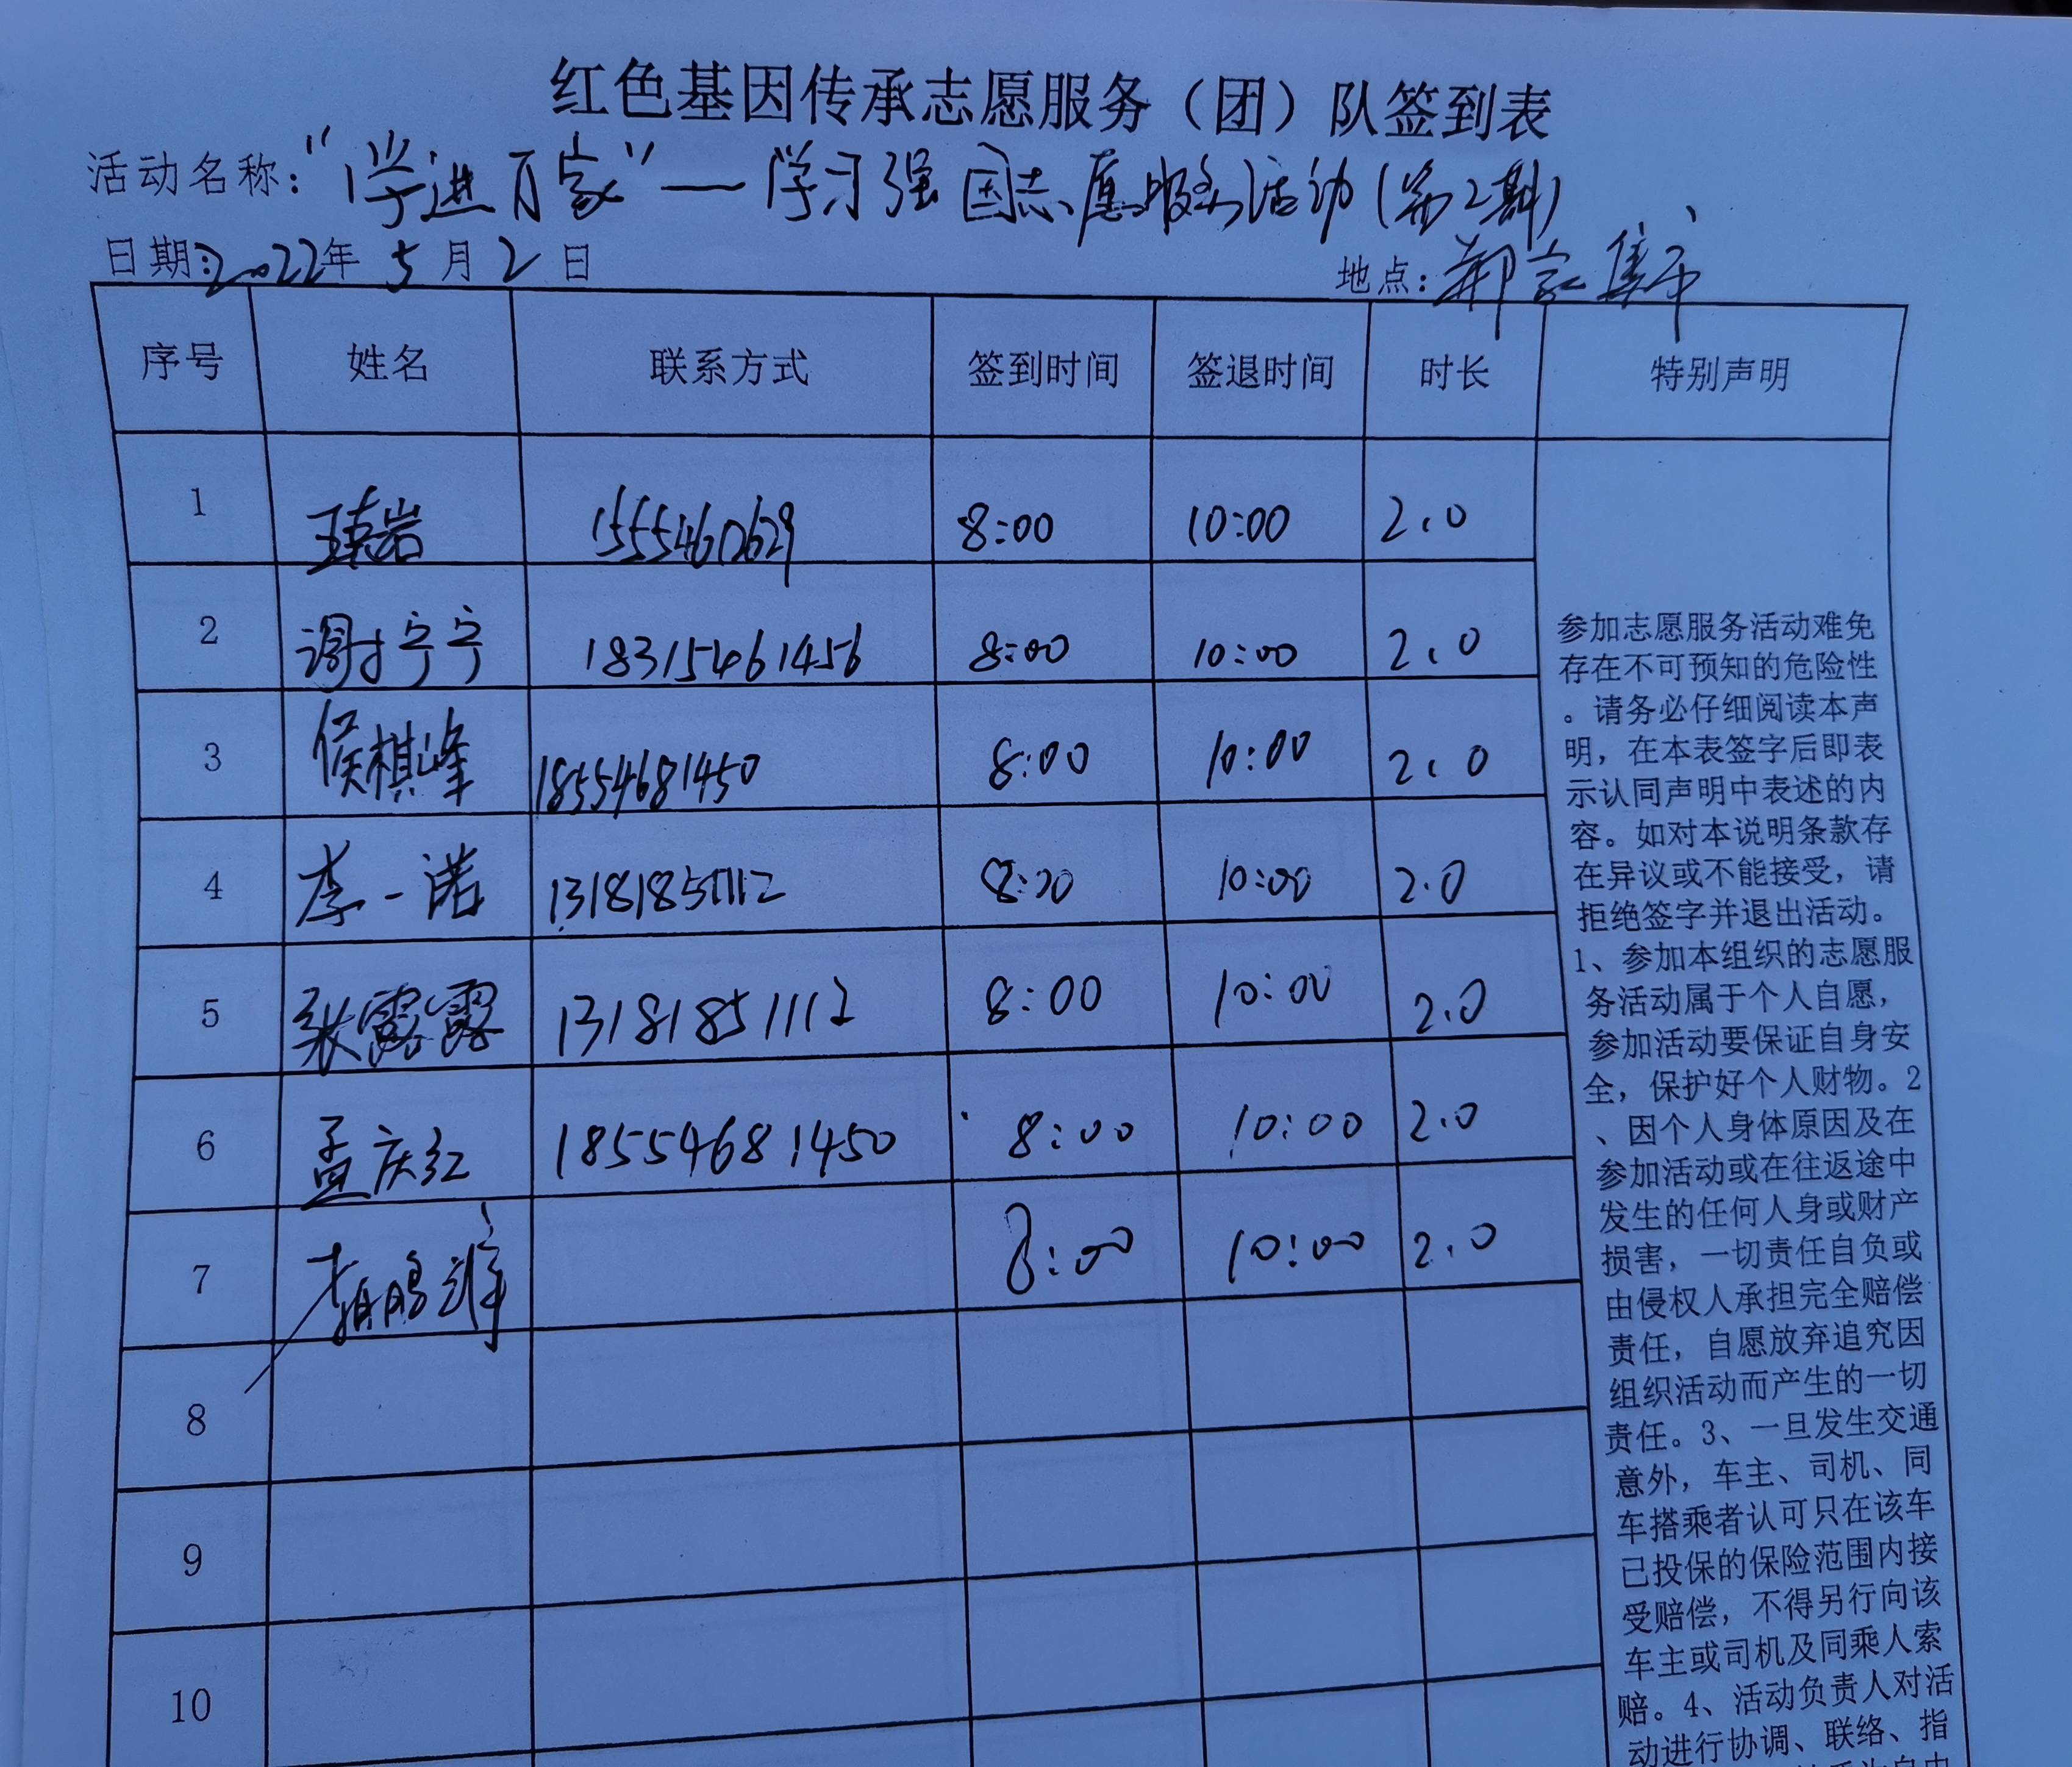 红色基因传承志愿服务（团）队签到表
活动名称："学进百家"—学习强国志愿服务活动(第2期)
日期:2022年 5 月 2 日 地点:郝家集市
序号 姓名 联系方式 签到时间 签退时间 时长 特别声明
1 岩 1555460629 8:00 10:00 2.0
2 谢宁宁 18315461456 8:00 10:00 2.0
3 侯棋峰 18554681450 8:00 10:00 2.0
4 李一诺 13181851112 8:00 10:00 2.0
5 张露露 13181851112 8:00 10:00 2.0
6 孟庆红 18554681450 8:00 10:00 2.0
7 鹏 8:00 10:00 2.0
8
9
10
参加志愿服务活动难免
存在不可预知的危险性
。请务必仔细阅读本声
明，在本表签字后即表
示认同声明中表述的内
容。如对本说明条款存
在异议或不能接受，请
拒绝签字并退出活动。
1、参加本组织的志愿服
务活动属于个人自愿，
参加活动要保证自身安
全，保护好个人财物。2
、因个人身体原因及在
参加活动或在往返途中
发生的任何人身或财产
损害，一切责任自负或
由侵权人承担完全赔偿
责任，自愿放弃追究因
组织活动而产生的一切
责任。3、一旦发生交通
意外，车主、司机、同
车搭乘者认可只在该车
已投保的保险范围内接
受赔偿，不得另行向该
车主或司机及同乘人索
赔。4、活动负责人对活
动进行协调、联络、指